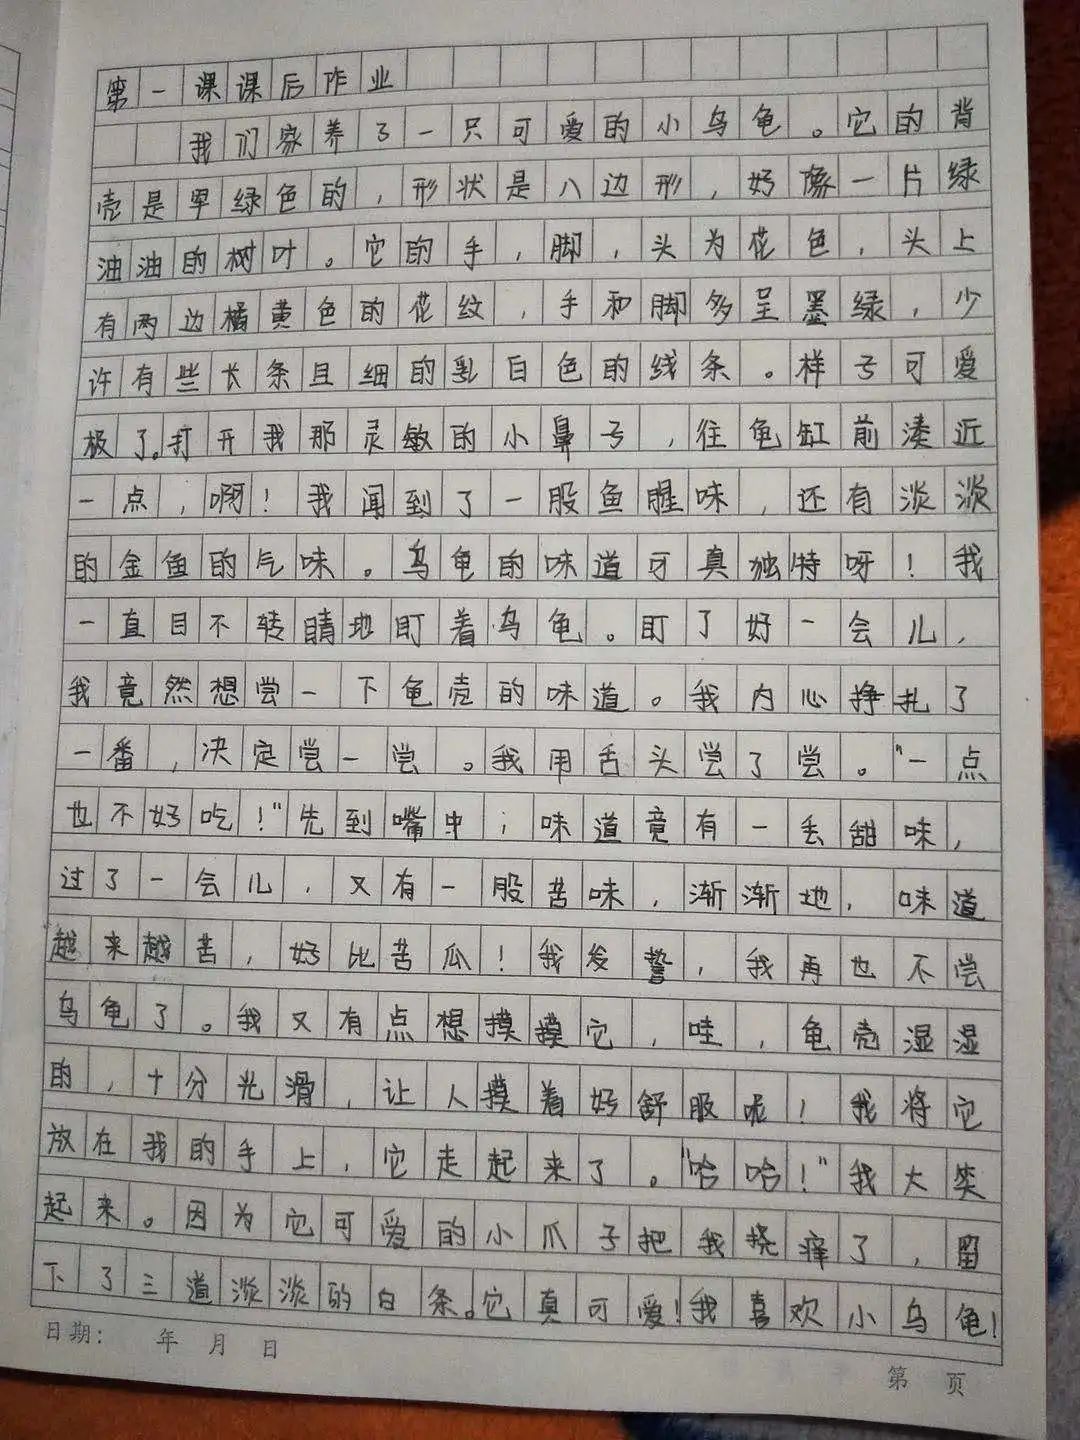 第一课课后作业
我们家养了一只可爱的小乌龟。它的背
壳是翠绿色的，形状是八边形，好像一片绿
油油的树叶。它的手，脚，头为花色，头上
有两边橘黄色的花纹，手和脚多呈墨绿，少
许有些长条且细的乳白色的线条。样子可爱
极了。打开我那灵敏的小鼻子，往龟缸前凑近
一点，啊！我闻到了一股鱼腥味，还有淡淡
的金鱼的气味。乌龟的味道可真独特呀！我
一直目不转睛地盯着乌龟。盯了好一会儿，
我竟然想尝一下龟壳的味道。我内心挣扎了
一番，决定尝一尝。我用舌头尝了尝。“一点
也不好吃！”先到嘴中；味道竟有一丢甜味，
过了一会儿，又有一股苦味，渐渐地，味道
越来越苦，好比苦瓜！我发誓，我再也不尝
乌龟了。我又有点想摸摸它，哇，龟壳湿湿
的，十分光滑，让人摸着好舒服呢！我将它
放在我的手上，它走起来了。“哈哈！”我大笑
起来。因为它可爱的小爪子把我挠痒了，留
下了三道淡淡的白条。它真可爱！我喜欢小乌龟！
日期： 年 月 日
第 页